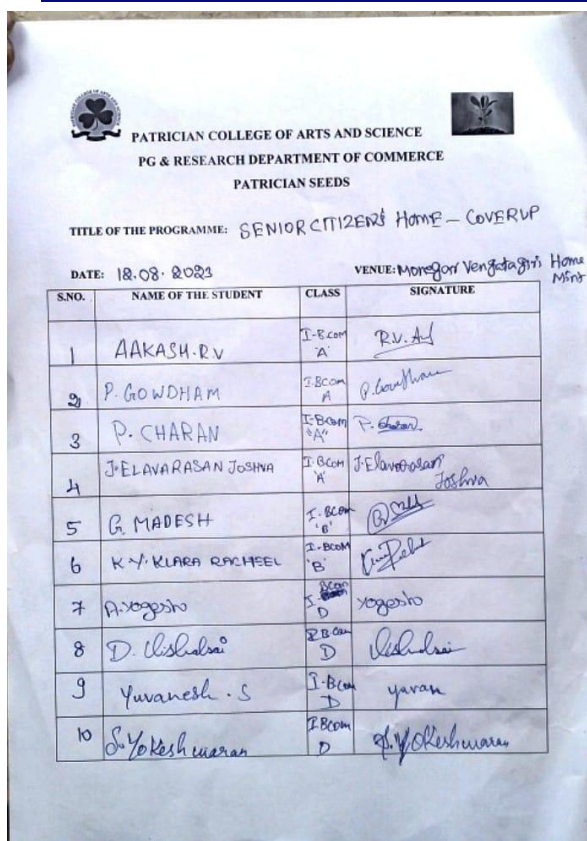 PATRICIAN COLLEGE OF ARTS AND SCIENCE
PG & RESEARCH DEPARTMENT OF COMMERCE
PATRICIAN SEEDS
TITLE OF THE PROGRAMME: SENIOR CITIZENS HOME – COVERUP
DATE: 18.08.2023 VENUE: Home
S.NO. NAME OF THE STUDENT CLASS SIGNATURE
1 AAKASH.R.V I-B.com 'A' R.V.
2 P. GOWDHAM I.BCom A P.
3 P. CHARAN I-BCom "A" P. Charan
4 J. ELAVARASAN JOSHVA I BCom 'A' J. Elavarasan Joshva
5 G. MADESH I-BCom 'B'
6 K.Y. KLARA RACHEEL I-BCOM 'B'
7 A. Yogesh I. BCom D Yogesh
8 D. Vishalsai I BCom D Vishalsai
9 Yuvanesh . S I-BCom D yuvan
10 S. Yokeshwaran I BCom D S. Yokeshwaran